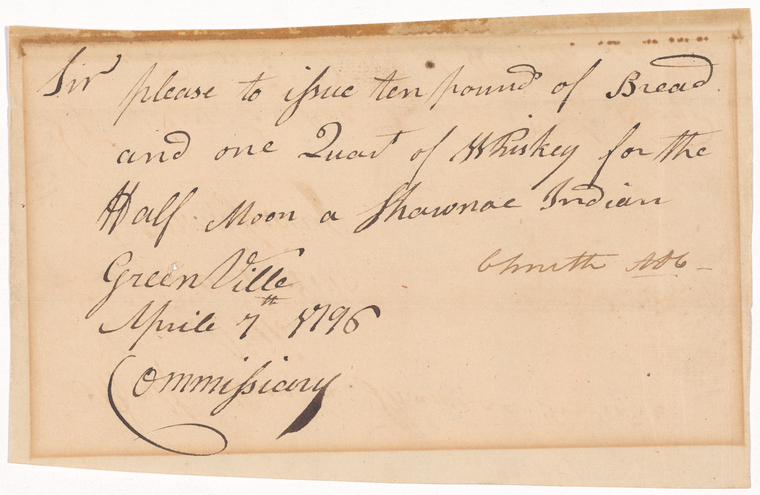 Sir please to issue ten pound of Bread
and one Quart of Whiskey for the
Half Moon a Shawnae Indian
GreenVille
Aprile 7th 1796
Commissiary